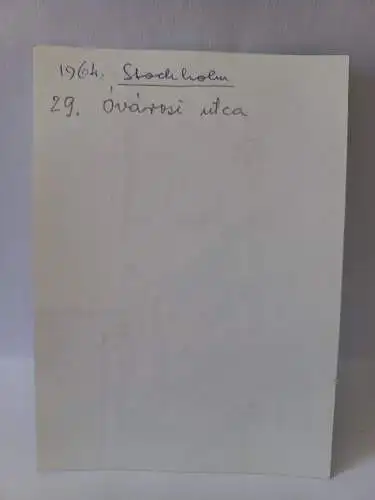 1964. Stockholm
29. Óvárosi utca